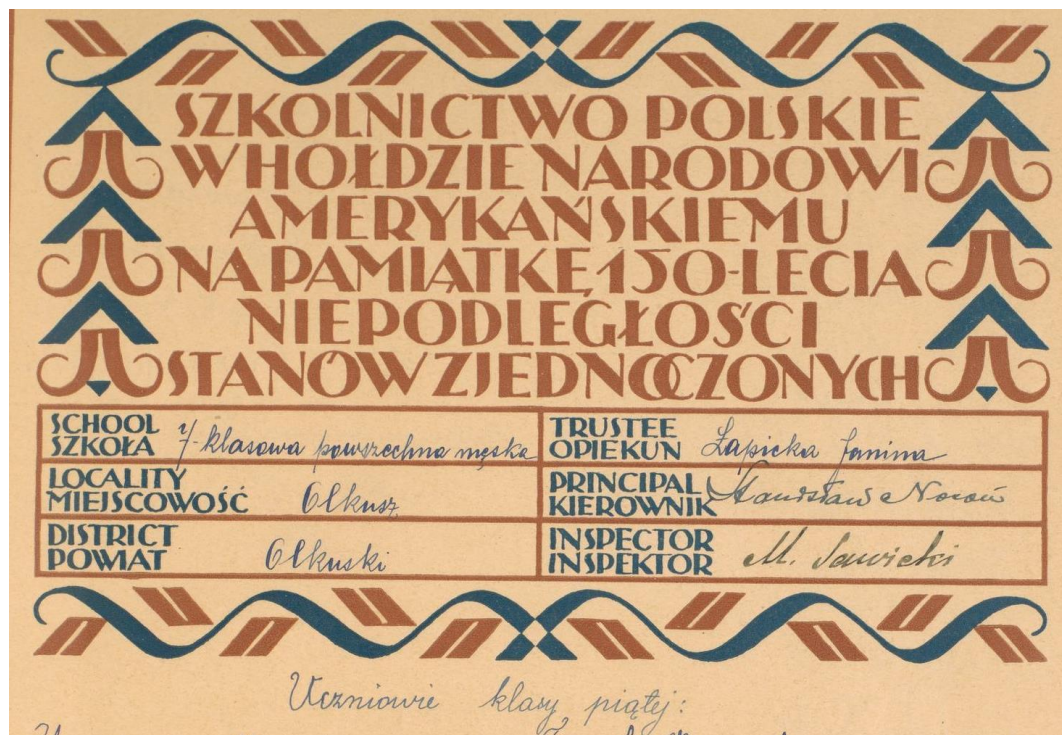 SZKOLNICTWO POLSKIE
W HOŁDZIE NARODOWI
AMERYKAŃSKIEMU
NA PAMIĄTKĘ 150-LECIA
NIEPODLEGŁOŚCI
STANÓW ZJEDNOCZONYCH
SCHOOL
SZKOŁA 7-klasowa powszechna męska
TRUSTEE
OPIEKUN Łapicka Janina
LOCALITY
MIEJSCOWOŚĆ Olkusz
PRINCIPAL
KIEROWNIK Stanisława
DISTRICT
POWIAT Olkuski
INSPECTOR
INSPEKTOR M. Sawicki
Uczniowie klasy piątej: